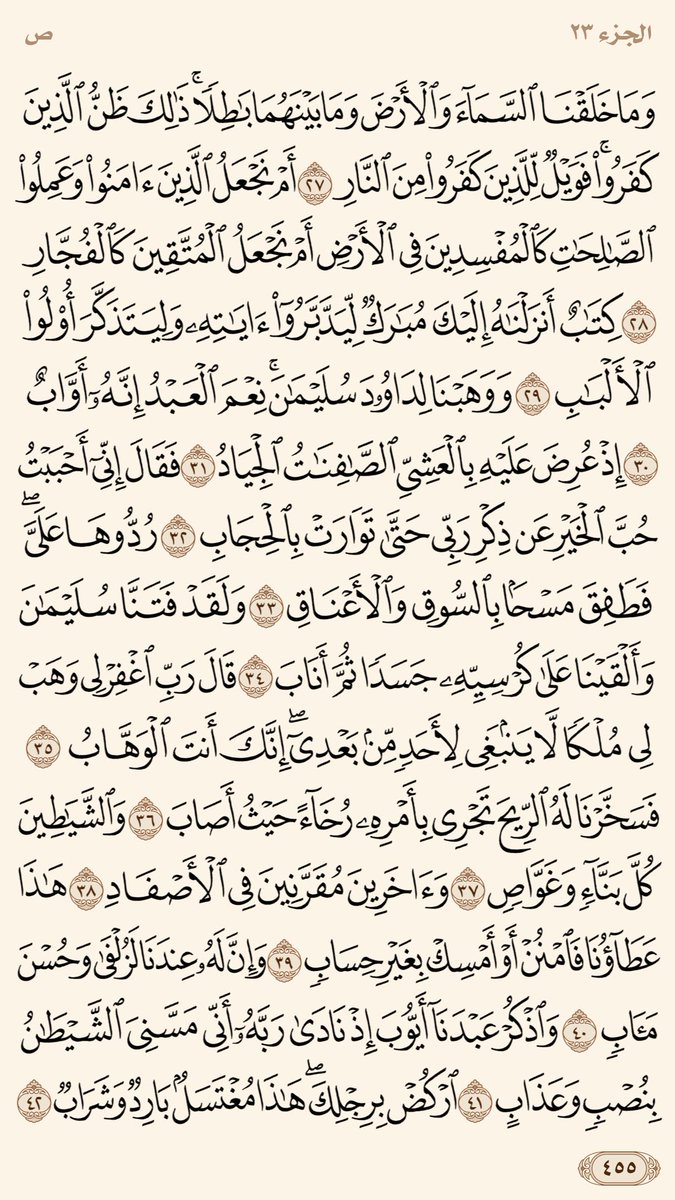 الجزء ٢٣
ص
وَمَا خَلَقۡنَا ٱلسَّمَآءَ وَٱلۡأَرۡضَ وَمَا بَيۡنَهُمَا بَٰطِلٗاۚ ذَٰلِكَ ظَنُّ ٱلَّذِينَ
كَفَرُواْۚ فَوَيۡلٞ لِّلَّذِينَ كَفَرُواْ مِنَ ٱلنَّارِ ٢٧ أَمۡ نَجۡعَلُ ٱلَّذِينَ ءَامَنُواْ وَعَمِلُواْ
ٱلصَّٰلِحَٰتِ كَٱلۡمُفۡسِدِينَ فِي ٱلۡأَرۡضِ أَمۡ نَجۡعَلُ ٱلۡمُتَّقِينَ كَٱلۡفُجَّارِ
٢٨ كِتَٰبٌ أَنزَلۡنَٰهُ إِلَيۡكَ مُبَٰرَكٞ لِّيَدَّبَّرُوٓاْ ءَايَٰتِهِۦ وَلِيَتَذَكَّرَ أُوْلُواْ
ٱلۡأَلۡبَٰبِ ٢٩ وَوَهَبۡنَا لِدَاوُۥدَ سُلَيۡمَٰنَۚ نِعۡمَ ٱلۡعَبۡدُ إِنَّهُۥٓ أَوَّابٌ
٣٠ إِذۡ عُرِضَ عَلَيۡهِ بِٱلۡعَشِيِّ ٱلصَّٰفِنَٰتُ ٱلۡجِيَادُ ٣١ فَقَالَ إِنِّيٓ أَحۡبَبۡتُ
حُبَّ ٱلۡخَيۡرِ عَن ذِكۡرِ رَبِّي حَتَّىٰ تَوَارَتۡ بِٱلۡحِجَابِ ٣٢ رُدُّوهَا عَلَيَّۖ
فَطَفِقَ مَسۡحَۢا بِٱلسُّوقِ وَٱلۡأَعۡنَاقِ ٣٣ وَلَقَدۡ فَتَنَّا سُلَيۡمَٰنَ
وَأَلۡقَيۡنَا عَلَىٰ كُرۡسِيِّهِۦ جَسَدٗا ثُمَّ أَنَابَ ٣٤ قَالَ رَبِّ ٱغۡفِرۡ لِي وَهَبۡ
لِي مُلۡكٗا لَّا يَنۢبَغِي لِأَحَدٖ مِّنۢ بَعۡدِيٓۖ إِنَّكَ أَنتَ ٱلۡوَهَّابُ ٣٥
فَسَخَّرۡنَا لَهُ ٱلرِّيحَ تَجۡرِي بِأَمۡرِهِۦ رُخَآءً حَيۡثُ أَصَابَ ٣٦ وَٱلشَّيَٰطِينَ
كُلَّ بَنَّآءٖ وَغَوَّاصٖ ٣٧ وَءَاخَرِينَ مُقَرَّنِينَ فِي ٱلۡأَصۡفَادِ ٣٨ هَٰذَا
عَطَآؤُنَا فَٱمۡنُنۡ أَوۡ أَمۡسِكۡ بِغَيۡرِ حِسَابٖ ٣٩ وَإِنَّ لَهُۥ عِندَنَا لَزُلۡفَىٰ وَحُسۡنَ
مَـَٔابٖ ٤٠ وَٱذۡكُرۡ عَبۡدَنَآ أَيُّوبَ إِذۡ نَادَىٰ رَبَّهُۥٓ أَنِّي مَسَّنِيَ ٱلشَّيۡطَٰنُ
بِنُصۡبٖ وَعَذَابٍ ٤١ ٱرۡكُضۡ بِرِجۡلِكَۖ هَٰذَا مُغۡتَسَلُۢ بَارِدٞ وَشَرَابٞ ٤٢
٤٥٥